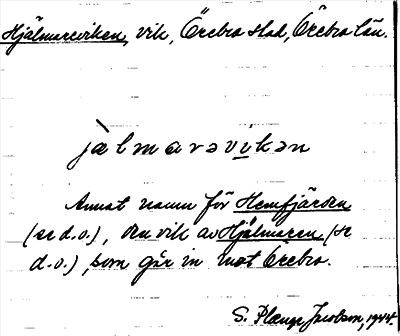 Hjälmareviken, vik, Örebro stad, Örebro län.
jàlmarəvikən
Annat namn för Hemfjärden
(se d.o.), den vik av Hjälmaren (se
d.o.), som går in mot Örebro.
S. Plænge Jacobson, 1944.